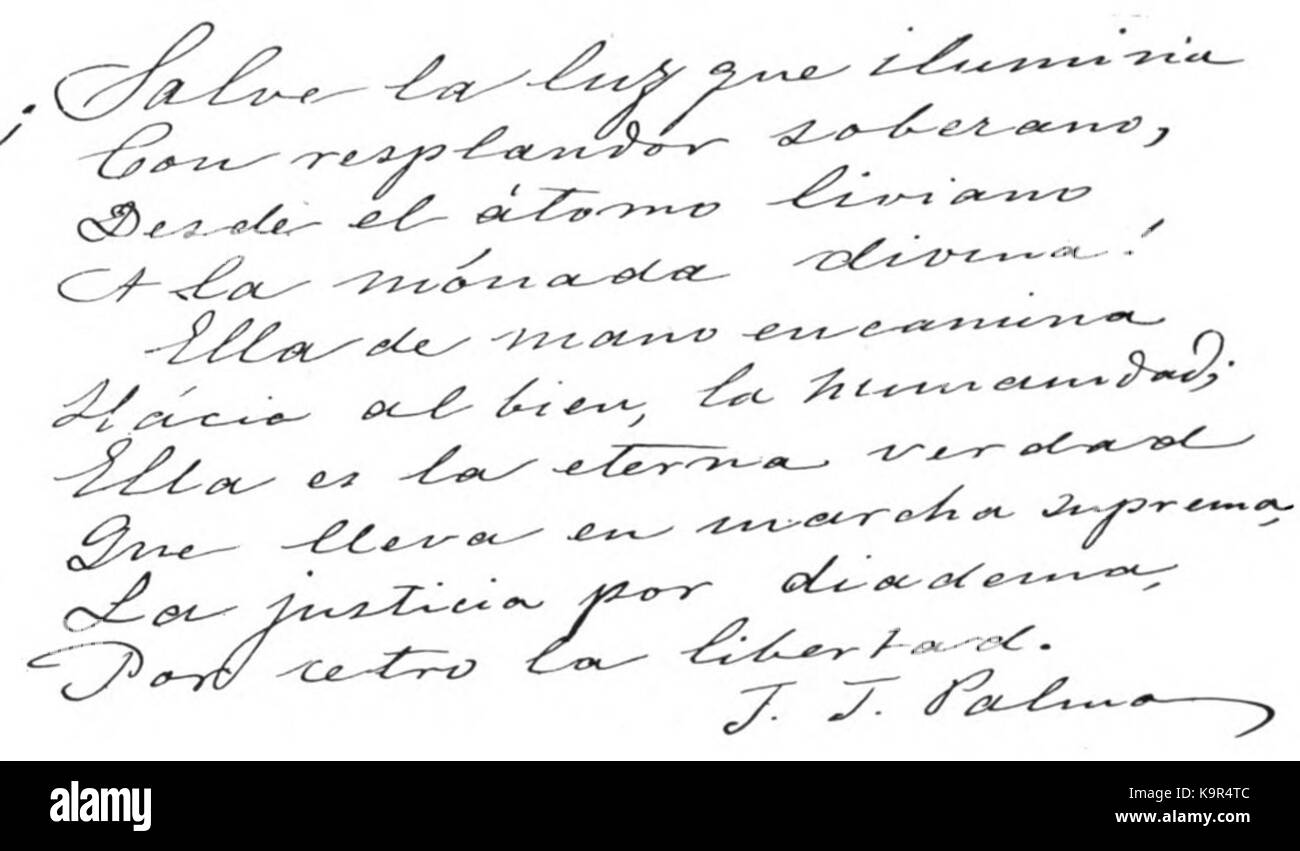 ¡Salve la luz que ilumina
Con resplandor soberano,
Desde el átomo liviano
A la mónada divina!
Ella de mano encamina
Hácia al bien, la humanidad;
Ella es la eterna verdad
Que lleva en marcha suprema,
La justicia por diadema,
Por cetro la libertad.
J. J. Palma
alamy
Image ID: K9R4TC
www.alamy.com